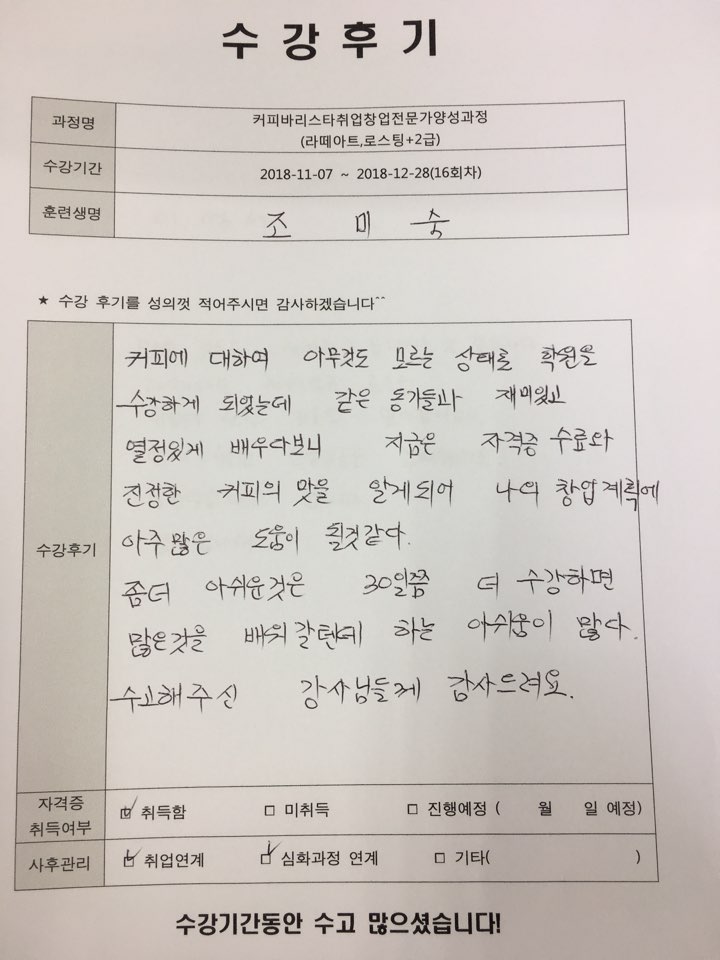 수강후기
과정명
커피바리스타취업창업전문가양성과정
(라떼아트,로스팅+2급)
수강기간
2018-11-07 ~ 2018-12-28(16회차)
훈련생명
조 미 숙
★ 수강 후기를 성의껏 적어주시면 감사하겠습니다^^
수강후기
커피에 대하여 아무것도 모르는 상태로 학원을
수강하게 되었는데 같은 동기들과 재미있고
열정있게 배우다보니 지금은 자격증 수료와
진정한 커피의 맛을 알게되어 나의 창업계획에
아주많은 도움이 될것같다.
좀더 아쉬운것은 30일쯤 더 수강하면
많은것을 배워갈텐데 하는 아쉬움이 많다.
수고해주신 강사님들께 감사드려요.
자격증
취득여부
☑ 취득함 □ 미취득 □ 진행예정 ( 월 일 예정)
사후관리
☑ 취업연계 ☑ 심화과정 연계 □ 기타( )
수강기간동안 수고 많으셨습니다!